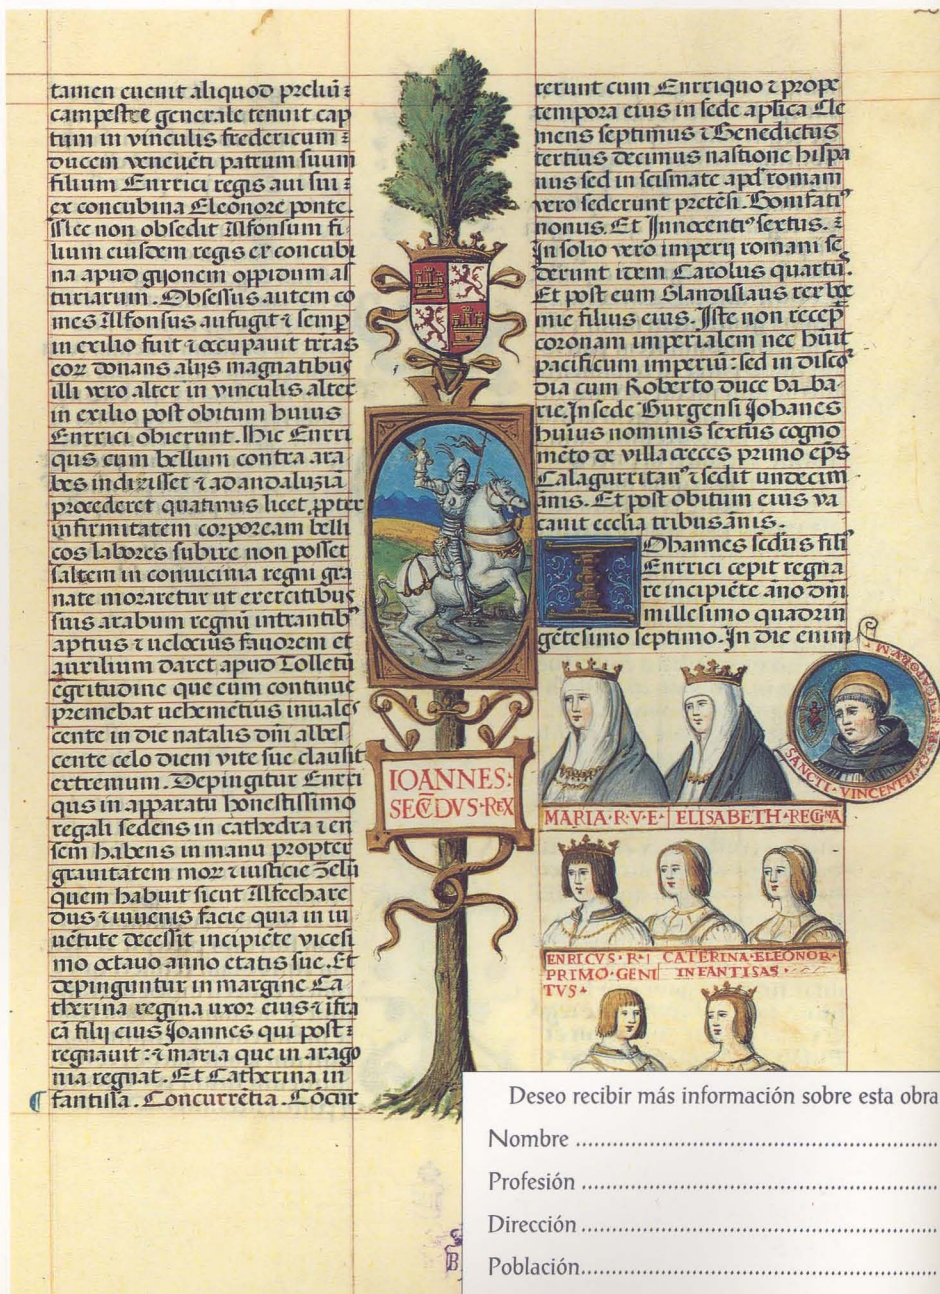 tamen euenit aliquod preliū
campestre generale tenuit cap
tum in vinculis fredericum
ducem veneuēti patrum suum
filium Enrrici regis aui sui
ex concubina Eleonore ponte.
Nec non obsedit Alfonsum fi
lium eiusdem regis ex concubi
na apud gijonem oppidum as
turiarum. Obsessus autem co
mes Alfonsus aufugit ⁊ semp̱
in exilio fuit ⁊ occupauit terras
donans alijs magnatibus
illi vero alter in vinculis alter
in exilio post obitum huius
Enrrici obierunt. Hic Enrri
qus cum bellum contra ara
bes indixisset ⁊ ad andaluziā
procederet quatinus licet propter
infirmitatem corpoream belli
cos labores subire non posset
saltem in conuicinia regni gra
nate moraretur ut exercitibus
suis arabum regnū intrantibꝰ
aptius ⁊ velocius fauorem et
auxilium daret apud Tolletū
egritudine que eum continue
premebat uehemētius inuales
cente in die natalis dn̄i albes
cente celo diem vite sue clausit
extremum. Depingitur Enrri
qus in apparatu honestissimo
regali sedens in cathedra ⁊ en
sem habens in manu propter
grauitatem mor ⁊ iusticie zelū
quem habuit sicut Alfechare
dus ⁊ iuuenis facie quia in iu
uētute decessit incipiēte vicesi
mo octauo anno etatis sue. Et
depinguntur in margine Ca
therina regina uxor eius ⁊ īfra
eā filij eius Joannes qui post
regnauit: ⁊ maria que in arago
nia regnat. Et Catherina in
fantissa. Concurrētia. Cōcur
rerunt cum Enrriquo ⁊ prope
tempora eius in sede aplica Cle
mens septimus ⁊ Benedictus
tertius decimus nastione hispa
nus sed in scismate apd' romam
vero sederunt pretēsi. Bonifatiꝰ
nonus. Et Innocentiꝰ sextus.
In solio vero imperij romani sę
derunt item Carolus quartꝰ.
Et post eum Slandislaus rex boe
mie filius eius. Iste non recep̄
coronam imperialem nec hūit
pacificum imperiū: sed in discor
dia cum Roberto duce ba ba
rie. In sede Burgensi Johanes
huius nominis sextus cogno
mēto de villa creces primo ep̄s
Calagurritanꝰ ⁊ sedit undecim
annis. Et post obitum eius va
cauit ecclīa tribus ānis.
IOhannes secdūs filiꝰ
Enrrici cepit regna
re incipiēte año dn̄i
millesimo quadrin
gētesimo septimo. In die enim
SANCTI · VINCENTII
IOANNES·
SECVDVS·REX
MARIA·R·V·E· ELISABETH·REGINA
ENRICVS·R·I CATERINA·ELEONOR·
PRIMO·GENI INFANTISAS·
TVS·
Deseo recibir más información sobre esta obra
Nombre
Profesión
Dirección
Población